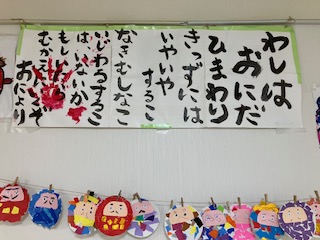 わしは
おにだ
ひまわり
きっずには
いやいや
するこ
なきむしなこ
いじわるするこ
はいないか
もしいたら
むかえにいくぞ
おにより